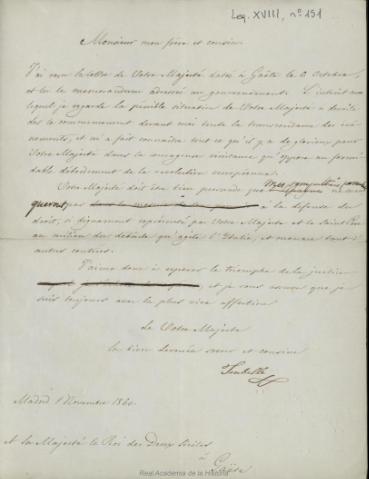 Leg. XVIII, nº 151
Monsieur mon frère et cousin
J'ai reçu la lettre de Votre Majesté datée à Gaëte le 6 Octobre,
et lu le memorandum adressé au gouvernement. L'intérêt avec
lequel je regarde la pénible situation de Votre Majesté a
dès le commencement devant moi toute la transcendance des évé-
nements, et m'a fait connaître tout ce qu'il y a de glorieux pour
Votre Majesté dans la courageuse résistance qu'oppose au formi-
dable débordement de la révolution européenne.
Votre Majesté doit être bien persuadée que mes sympathies ne man-
queront pas à la défense du
droit, si dignement représenté par Votre Majesté et le Saint Père
au milieu des débats qu'agite l'Italie, et menace tant d'
autres contrées.
J'aime donc à espérer le triomphe de la justice
et je vous assure que je
suis toujours avec la plus vive affection
De Votre Majesté
la bien dévouée sœur et cousine
Isabelle
Madrid Novembre 1860
A Sa Majesté le Roi des Deux Siciles
à Gaëte
Real Academia de la Historia